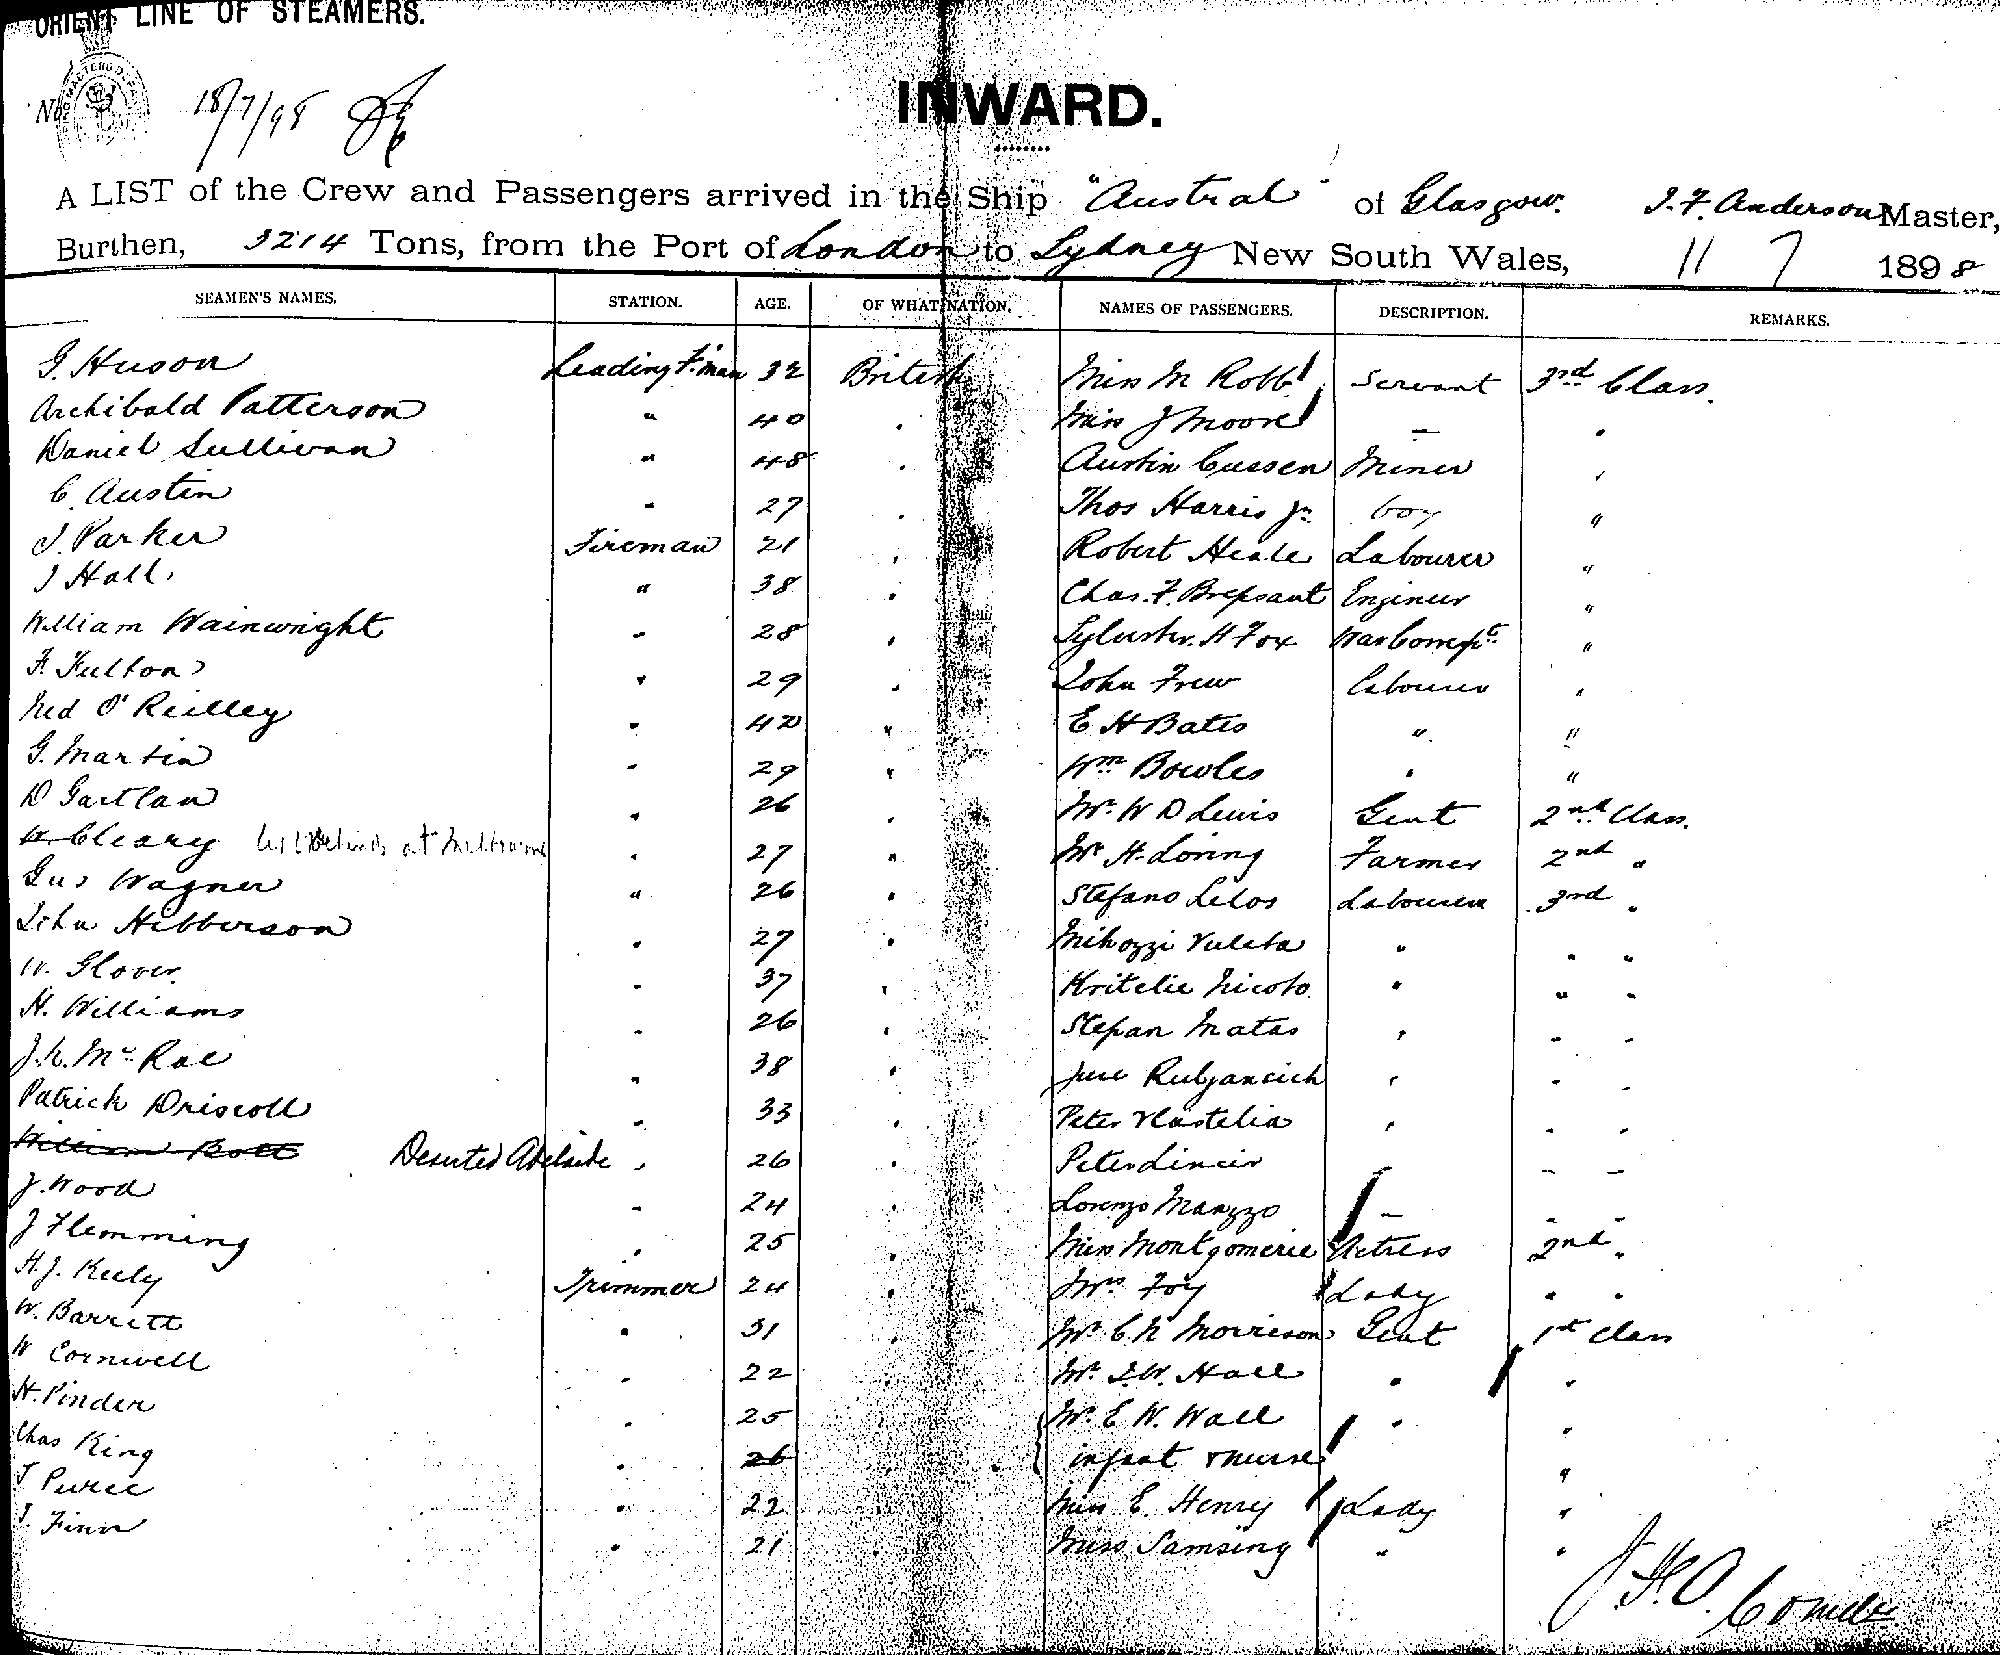 ORIENT LINE OF STEAMERS.
No. 18/7/98
INWARD.
A LIST of the Crew and Passengers arrived in the Ship "Austral" of Glasgow. J. F. Anderson Master,
Burthen, 3214 Tons, from the Port of London to Sydney New South Wales, 11 7 1898
SEAMEN'S NAMES. STATION. AGE. OF WHAT NATION. NAMES OF PASSENGERS. DESCRIPTION. REMARKS.
G. Huson Leading F'man 32 British Miss M Robb Servant 3rd Class.
Archibald Patterson " 40 " Miss J Moore — "
Daniel Sullivan " 48 " Austin Cussen Miner "
C. Austin " 27 " Thos Harris Jr. boy "
J. Parker Fireman 21 " Robert Heale Labourer "
J Hall " 38 " Chas. F. Brepsant Engineer "
William Wainwright " 28 " Sylvester H Fox "
F. Fulton " 29 " John Frew Labourer "
Ned O'Reilley " 42 " E H Bates " "
G. Martin " 29 " Wm Bowles " "
D Gartlan " 26 " Mr. W D Lewis Gent 2nd Class.
Cleary at Melbourne " 27 " Mr H. Loring Farmer 2nd "
Gus Wagner " 26 " Stefano Lelos Labourer 3rd "
John Hibberson " 27 " Mihozzi Vuleta " " "
W. Glover. " 37 " Kritelie Nicolo " " "
H. Williams " 26 " Stepan Matas " " "
J. K. McRae " 38 " Jure Ruljancich " " "
Patrick Driscoll " 33 " Peter Vlastelia " " "
William Bott Deserted Adelaide " 26 " Peter Lincir " " "
J. Wood " 24 " Lorenzo Manzzo " " "
J Flemming " 25 " Miss Montgomerie Actress 2nd "
H. J. Keely Trimmer 24 " Mrs Foy Lady " "
W. Barrett " 31 " Mr. C. N Morrison Gent 1st Class
W Cornwell " 22 " Mr. J. W. Hall " "
H. Pinder " 25 " Mr. E. W. Wall " "
Chas King " 26 " infant & nurse "
J Peirce " 22 " Miss E. Henry Lady "
J. Finn " 21 " Miss Samsing " "